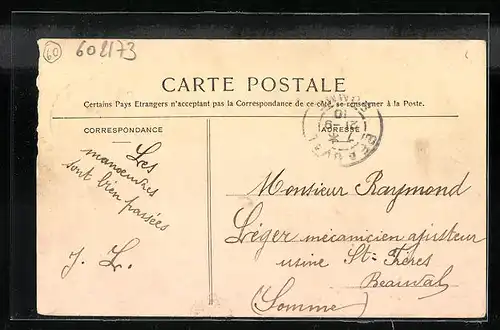 60
602173
CARTE POSTALE
Certains Pays Etrangers n'acceptant pas la Correspondance de ce côté, se renseigner à la Poste.
CORRESPONDANCE
ADRESSE
Les
manœuvres
sont bien passées
J. L.
Monsieur Raymond
Léger mécanicien ajusteur
usine St. Frères
Beauval
(Somme)